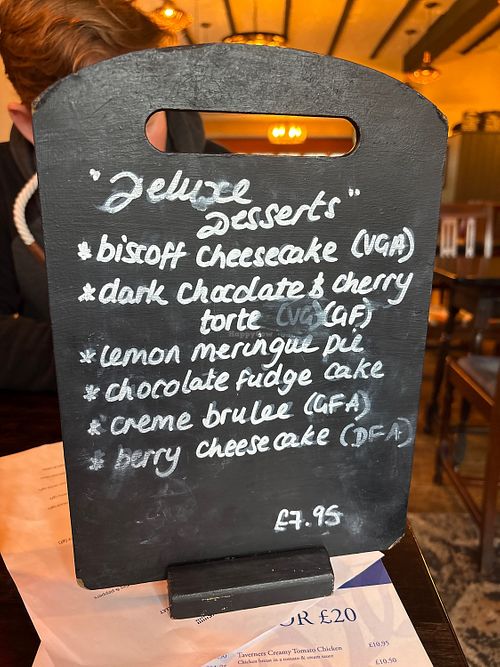 "Deluxe
Desserts"
*biscoff cheesecake (VGA)
*dark chocolate & cherry
torte (VG)(GF)
*lemon meringue pie
*chocolate fudge cake
*creme brulee (GFA)
*berry cheesecake (DFA)
£7.95
OR £20
Taverners Creamy Tomato Chicken £10.95
Chicken breast in a tomato & cream sauce
£10.50